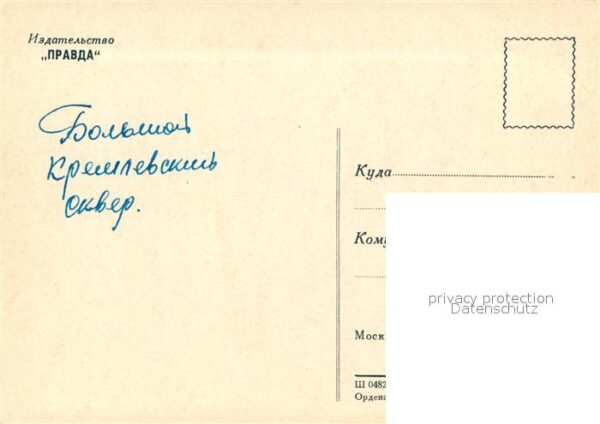 Издательство
„ПРАВДА“
Большой
Кремлевский
сквер.
Куда
Кому
Моск
Ш 0482
Орден
privacy protection
Datenschutz